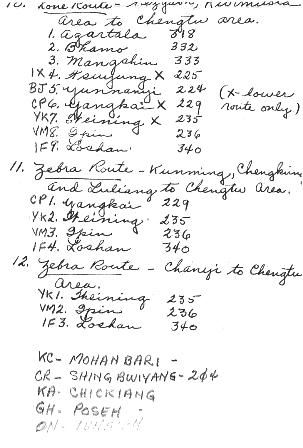 10. Zone Route -
Area to Chengtu area.
1. Agartala 318
2. Bhamo 332
3. Mangshih 333
IX 4. X 225
BJ 5. Yunnanyi 224 (X-lower
CP 6. Yangkai X 229 route only)
YK 7. Sheining X 235
VM 8. Ipin 236
IF 9. Loshan 340
11. Zebra Route - Kunming, Chengking
and Luliang to Chengtu Area.
CP 1. Yangkai 229
YK 2. Sheining 235
VM 3. Ipin 236
IF 4. Loshan 340
12. Zebra Route - Chanyi to Chengtu
Area.
YK 1. Sheining 235
VM 2. Ipin 236
IF 3. Loshan 340
KC - MOHANBARI -
CR - SHINGBWIYANG - 204
KA - CHICKIANG
GH - POSEH -